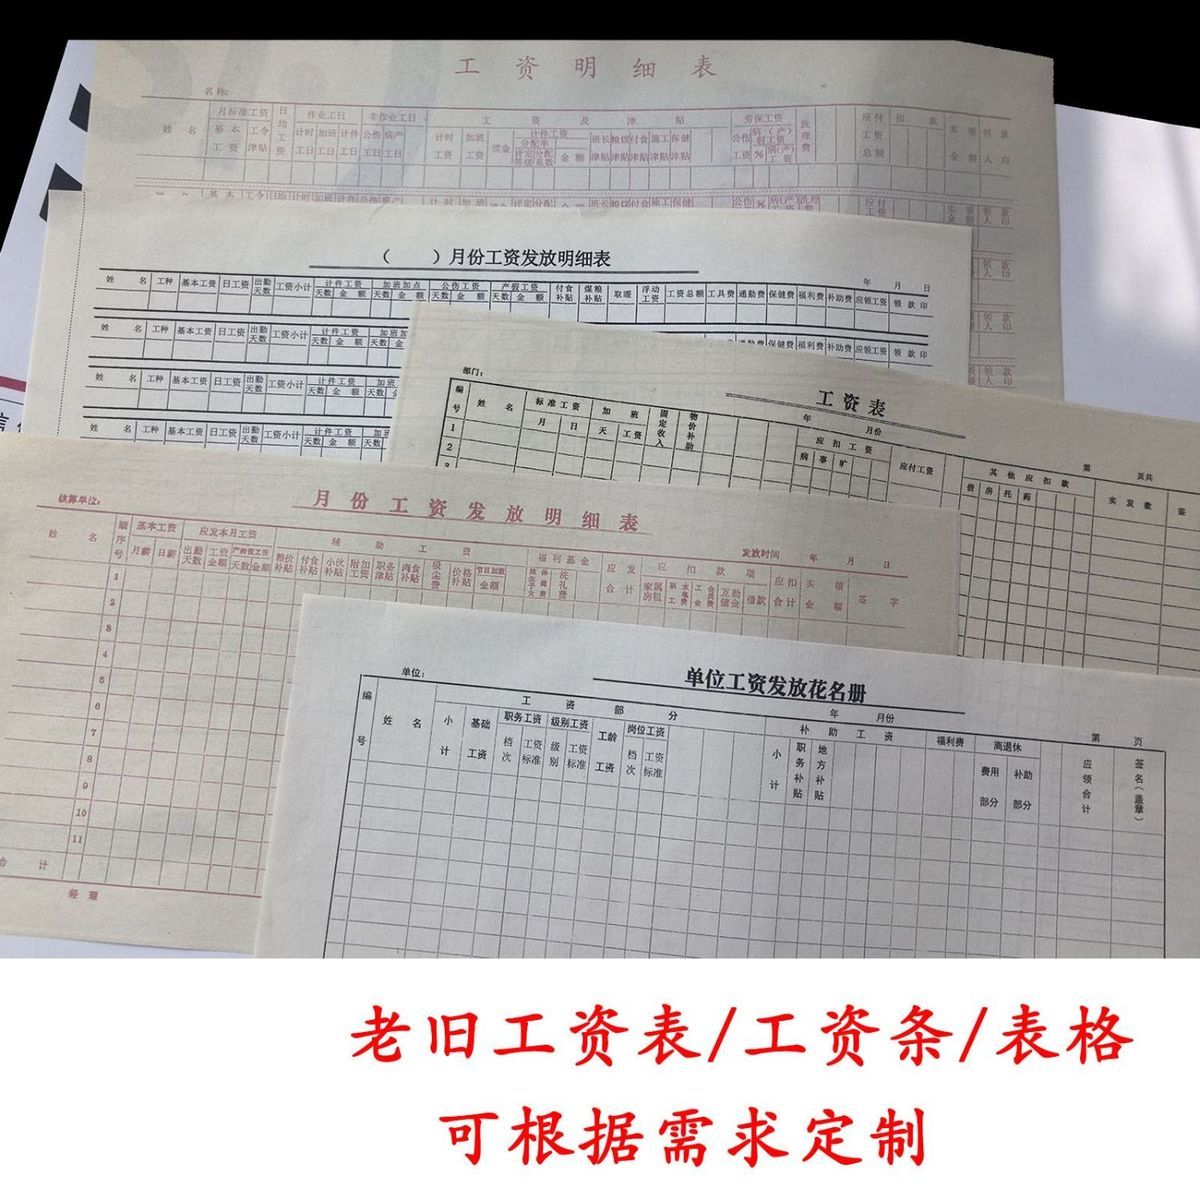 工资明细表
名称:
姓名 月标准工资 日均工资 作业工日 非作业工日 工资及津贴 劳保工资 洗理费 应付工资总额 扣款 实领金额 领款人印
基本工资 工令津贴 计时工日 加班工日 计件工日 公伤工日 病产工日 计时工资 加班工资 奖金 计件工资 班长津贴 粮煤津贴 付食津贴 施工津贴 保健津贴 公伤工资 病(产)假工资
分配率 评定等级 分配系数 金额 % 病(产)工资
( )月份工资发放明细表
年 月 日
姓名 工种 基本工资 日工资 出勤天数 工资小计 计件工资 加班加点 公伤工资 产假工资 付食补贴 煤粮补贴 取暖 浮动工资 工资总额 工具费 通勤费 保健费 福利费 补助费 应领工资 领款印
天数 金额 天数 金额 天数 金额 天数 金额
姓名 工种 基本工资 日工资 出勤天数 工资小计 计件工资 通勤费 保健费 福利费 补助费 应领工资 领款印
天数 金额 天数
姓名 工种 基本工资 日工资 出勤天数 工资小计 计件工资 加班
天数 金额 天数
姓名 工种 基本工资 日工资 出勤天数 工资小计 计件工资
天数 金额 天数
工资表
部门:
年 月份
第 页共
编号 姓名 标准工资 加班 固定收入 物价补助 应扣工资 应付工资 其他应扣款 实发数 签
月 日 天 工资 病 事 旷 借 房 托 药
1
2
3
月份工资发放明细表
核算单位:
发放时间 年 月 日
姓名 顺序号 基本工资 应发本月工资 辅助工资 福利基金 应发合计 应扣款项 应扣合计 实领金额 签字
月薪 日薪 出勤天数 工资金额 产病假工资 粮价补贴 付食补贴 小伙补贴 附加工资 职务津贴 肉食补贴 吸尘费 价格补贴 节日加班 洗礼费 家属房租 水电费 工会会员费 互助储金 借款
天数 金额 金额
1
2
3
4
5
6
7
8
9
10
11
合计
经理
单位工资发放花名册
单位:
年 月份
第 页
编号 姓名 工资部分 补助工资 福利费 离退休 应领合计 签名(盖章)
小计 基础工资 职务工资 级别工资 工龄工资 岗位工资 小计 职务补贴 地方补贴 费用部分 补助部分
档次 工资标准 级别 工资标准 档次 工资标准
老旧工资表/工资条/表格
可根据需求定制